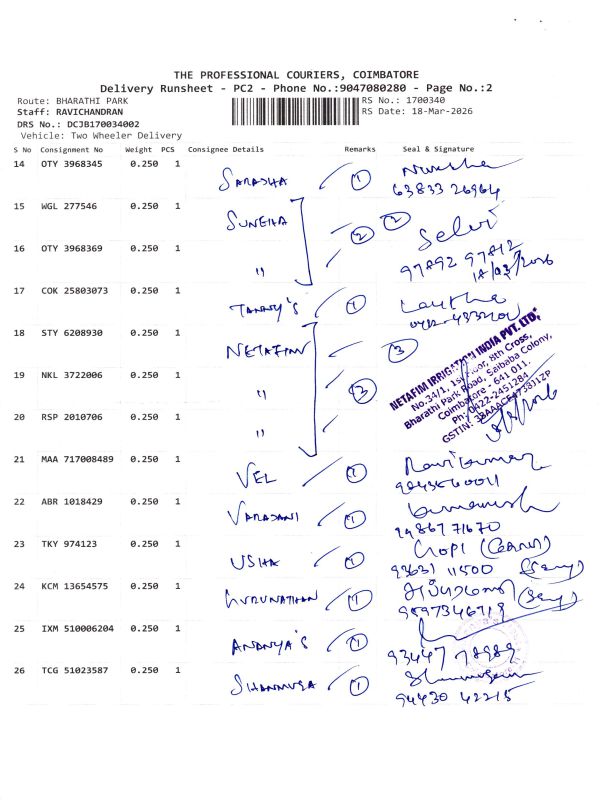 THE PROFESSIONAL COURIERS, COIMBATORE
Delivery Runsheet - PC2 - Phone No.:9047080280 - Page No.:2
Route: BHARATHI PARK
RS No.: 1700340
Staff: RAVICHANDRAN
RS Date: 18-Mar-2026
DRS No.: DCJB170034002
Vehicle: Two Wheeler Delivery
S No Consignment No Weight PCS Consignee Details Remarks Seal & Signature
14 OTY 3968345 0.250 1
SARADHA 1
63833 26964
15 WGL 277546 0.250 1
SUNEHA 2 2
Selvi
16 OTY 3968369 0.250 1
"
97892 97812
18/03/2026
17 COK 25803073 0.250 1
TANNY'S 1
Lautha
18 STY 6208930 0.250 1
NETAFIM 3
19 NKL 3722006 0.250 1
" 3
20 RSP 2010706 0.250 1
"
NETAFIM IRRIGATION INDIA PVT. LTD.
No.34/1, 1st Floor, 8th Cross,
Bharathi Park Road, Saibaba Colony,
Coimbatore - 641 011.
Ph: 0422-2451284
21 MAA 717008489 0.250 1
VEL 1
Ravikumar
22 ABR 1018429 0.250 1
VARADANI 1
23 TKY 974123 0.250 1
USHA 1
GOPI
93631 11500
24 KCM 13654575 0.250 1
GURUNATHAN 1
9597346719
25 IXM 510006204 0.250 1
ANANYA'S 1
93447 78989
26 TCG 51023587 0.250 1
SHANMUGA 1
94430 42215